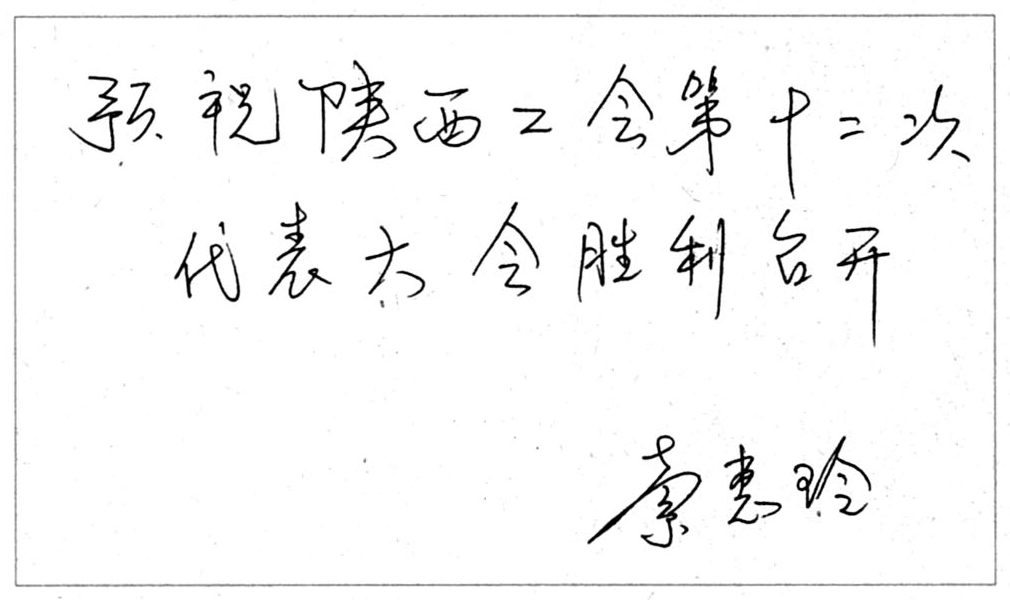 预祝陕西工会第十二次
代表大会胜利召开
索惠玲